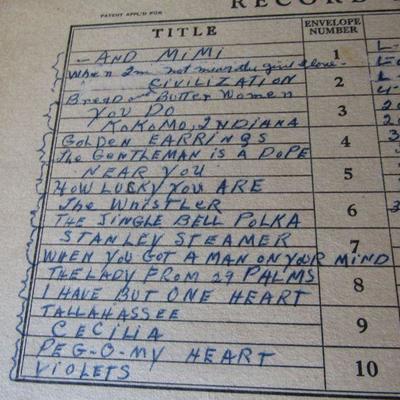 RECORD
PATENT APPL'D FOR
TITLE ENVELOPE NUMBER
- AND MIMI 1 L-
When I'm not near the girl I love -
CIVILIZATION 2 L
Bread and Butter Women
YOU DO 3
KOKOMO, INDIANA
GOLDEN EARRINGS 4
The GENTLEMAN IS A DOPE
NEAR YOU 5
HOW LUCKY YOU ARE
The Whistler 6
THE JINGLE BELL POLKA
STANLEY STEAMER 7
WHEN YOU GOT A MAN ON YOUR MIND
THE LADY FROM 29 PALMS 8
I HAVE BUT ONE HEART
TALLAHASSEE 9
CECILIA
PEG-O-MY HEART 10
VIOLETS